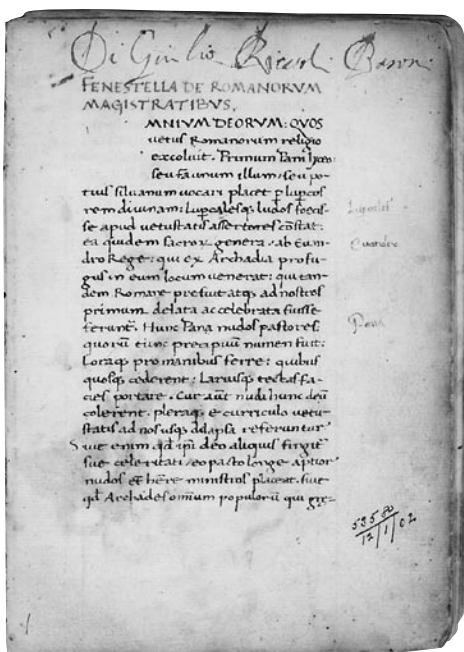 Di Giulio Riccoli Baroni
FENESTELLA DE ROMANORVM
MAGISTRATIBVS.
MNIVM DEORVM: QVOS
uetus Romanorum religio
excoluit. Primum Pani lyceo
seu faunum illum: seu po-
tius siluanum uocari placet p lupcos
rem diuinam: Lupcalesq ludos foecis-
se apud uetustatis assertores constat:
ea quidem sacrorum genera: ab Euan-
dro Rege: qui ex Archadia profu-
gus in eum locum uenerat: qui tan-
dem Romane prefuit atq ad nostros
primum delata ac celebrata fuisse
ferunt. Hunc Pana nudos pastores:
quorū tunc precipuū numen fuit:
Loraq pro manibus ferre: quibus
quosq cederent: Laruisq tectas fa-
cies portare. Cur aūt nudi hunc deū
colerent. pleraq e curriculo uetu-
statis ad nos usq delapsa referuntur
Siue enim qd ipi deo aliquis fingit
sue celeritati: eo pacto longe aptior
nudos et hēre ministros placeat. siue
qd Archades omnium populorū qui gre-
Lupcales
Euandro
Pana
53580
12/1/02